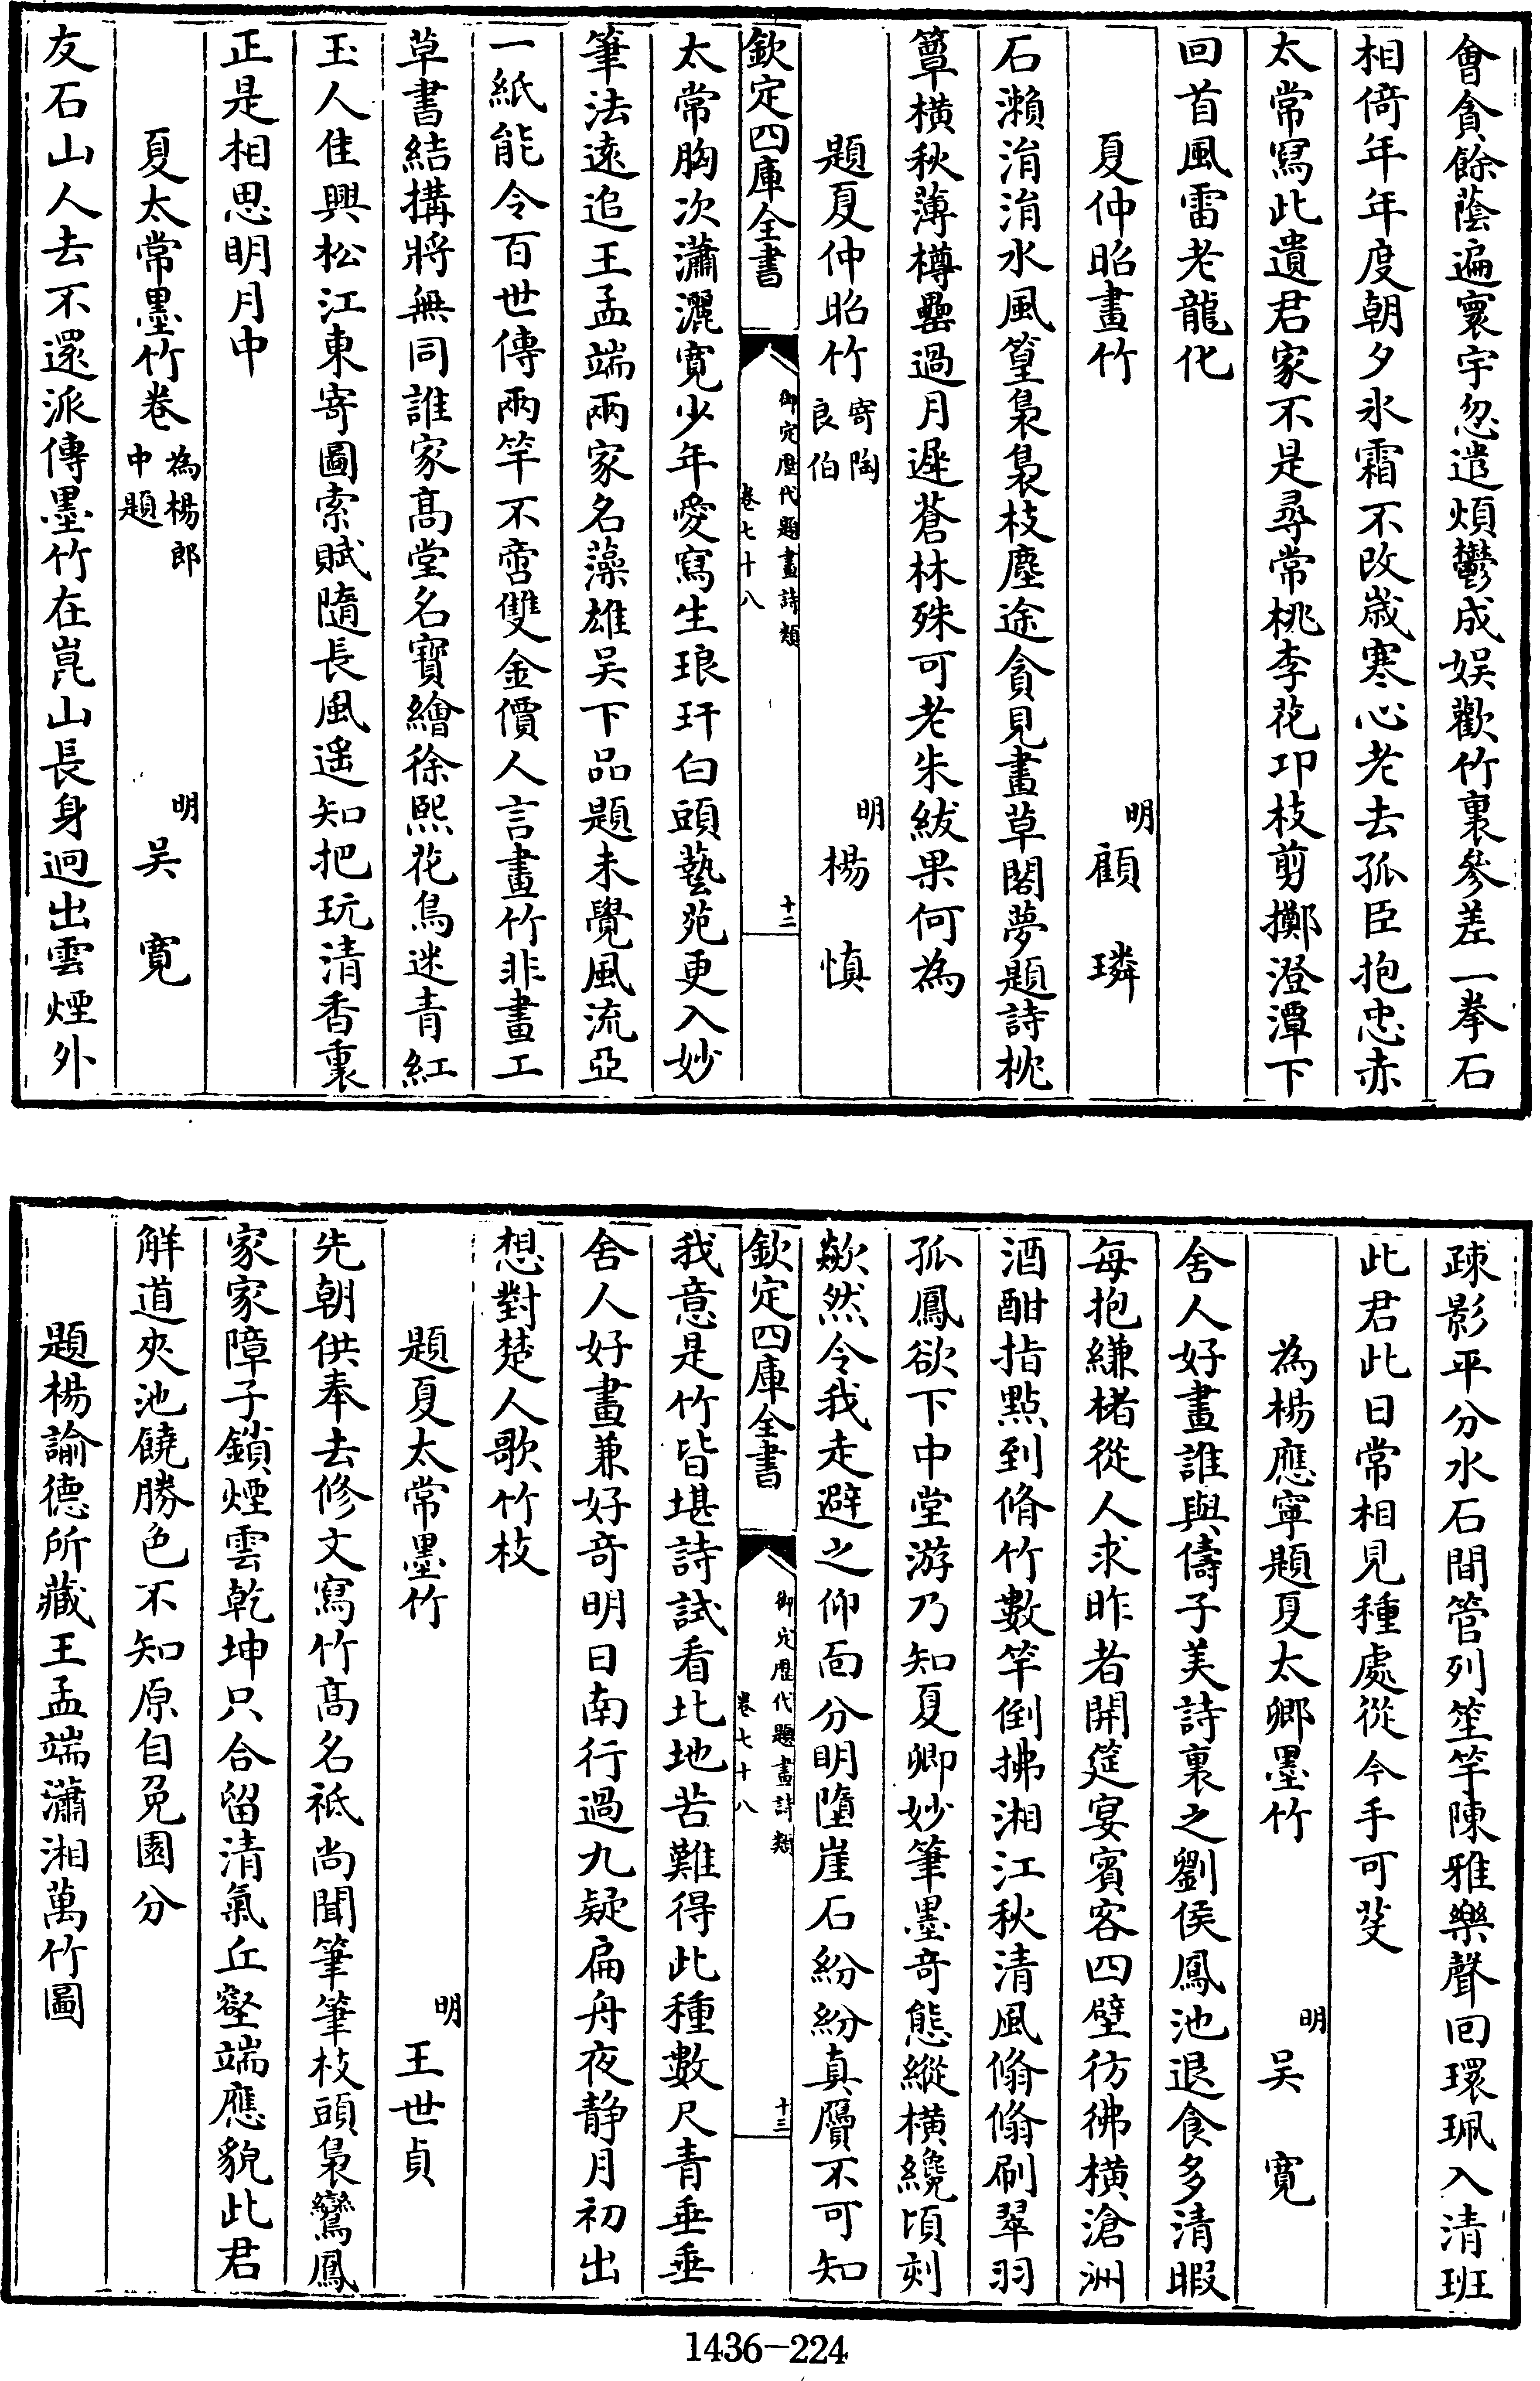 會貪餘蔭遍寰宇忽遣煩鬱成娯歡竹裏參差一拳石
相倚年年度朝夕氷霜不改嵗寒心老去孤臣抱忠赤
太常寫此遺君家不是尋常桃李花卭枝剪擲澄潭下
回首風雷老龍化
夏仲昭畫竹
明
顧璘
石瀨涓涓水風篁裊裊枝塵途貪見畫草閣夢題詩枕
簟橫秋薄樽罍過月遲蒼林殊可老朱紱果何為
題夏仲昭竹
寄陶
良伯
明
楊慎
欽定四庫全書
御定歴代題畫詩類
卷七十八
十二
太常胸次瀟灑寛少年愛寫生琅玕白頭藝苑更入妙
筆法遠追王孟端兩家名藻雄吴下品題未覺風流亞
一紙能令百世傳兩竿不啻雙金價人言畫竹非畫工
草書結搆將無同誰家髙堂名寳繪徐熙花鳥迷青紅
玉人佳興松江東寄圖索賦隨長風遥知把玩清香裏
正是相思明月中
夏太常墨竹卷
為楊郎
中題
明
吴寛
友石山人去不還派傳墨竹在崑山長身迥出雲煙外
疎影平分水石間管列笙竽陳雅樂聲回環珮入清班
此君此日常相見種處從今手可芟
為楊應寧題夏太卿墨竹
明
吴寛
舍人好畫誰與儔子美詩裏之劉侯鳳池退食多清暇
每抱縑楮從人求昨者開筵宴賓客四壁彷彿橫滄洲
酒酣指點到脩竹數竿倒拂湘江秋清風翛翛刷翠羽
孤鳳欲下中堂游乃知夏卿妙筆墨奇態縱橫纔頃刻
歘然令我走避之仰面分明墮崖石紛紛真贋不可知
欽定四庫全書
御定歴代題畫詩類
卷七十八
十三
我意是竹皆堪詩試看北地苦難得此種數尺青垂垂
舍人好畫兼好奇明日南行過九疑扁舟夜静月初出
想對楚人歌竹枝
題夏太常墨竹
明
王世貞
先朝供奉去修文寫竹髙名祗尚聞筆筆枝頭裊鸞鳳
家家障子鎖煙雲乾坤只合留清氣丘壑端應貌此君
解道夾池饒勝色不知原自兔園分
題楊諭德所藏王孟端瀟湘萬竹圖
1436-224